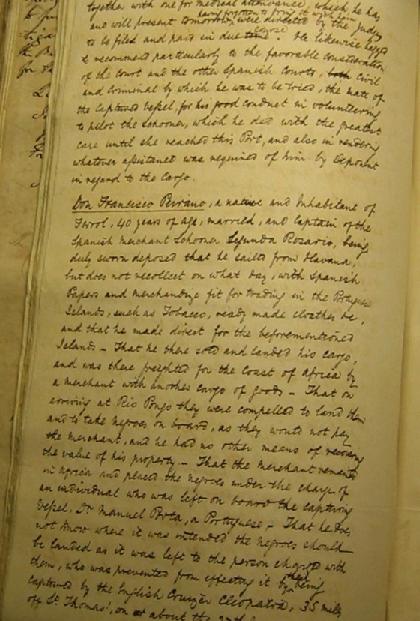 together with one for medical attendance, which he has
and will present tomorrow, were directed by the judge
to be filed and paid in due course. He likewise begged
& recommend particularly to the favorable consideration
of the court and the other Spanish Courts, both civil
and criminal by which he was to be tried, the mate of
the captured vessel, for his good conduct in volunteering
to pilot the schooner, which he did with the greatest
care until she reached this Port, and also in rendering
whatever assistance was required of him by deponent
in regard to the cargo.
Don Francisco Perrano, a native and Inhabitant of
Ferrol, 40 years of age, married, and captain of the
Spanish merchant Schooner Segunda Rosario, being
duly sworn deposed that he sailed from Havana,
but does not recollect on what day, with Spanish
Papers and merchandize fit for trading in the Portuguese
Islands, such as Tobacco, ready made cloathes &c,
and that he made direct for the beforementioned
Islands - That he there sold and landed his cargo,
and was there freighted for the coast of Africa by
a merchant with another cargo of goods - That on
arriving at Rio Pongo they were compelled to land them
and to take negroes on board, as they would not pay
the merchant, and he had no other means of recovering
the value of his property - That the merchant remained
in Africa and placed the negroes under the charge of
an individual who was left on board the capturing
vessel, Dr Manuel Porta, a Portuguese - That he does
not know where it was intended the negroes should
be landed as it was left to the person charged with
them, who was prevented from effecting it by their being
captured by the English Cruizer Cleopatra, 35 miles
off St. Thomas', on or about the